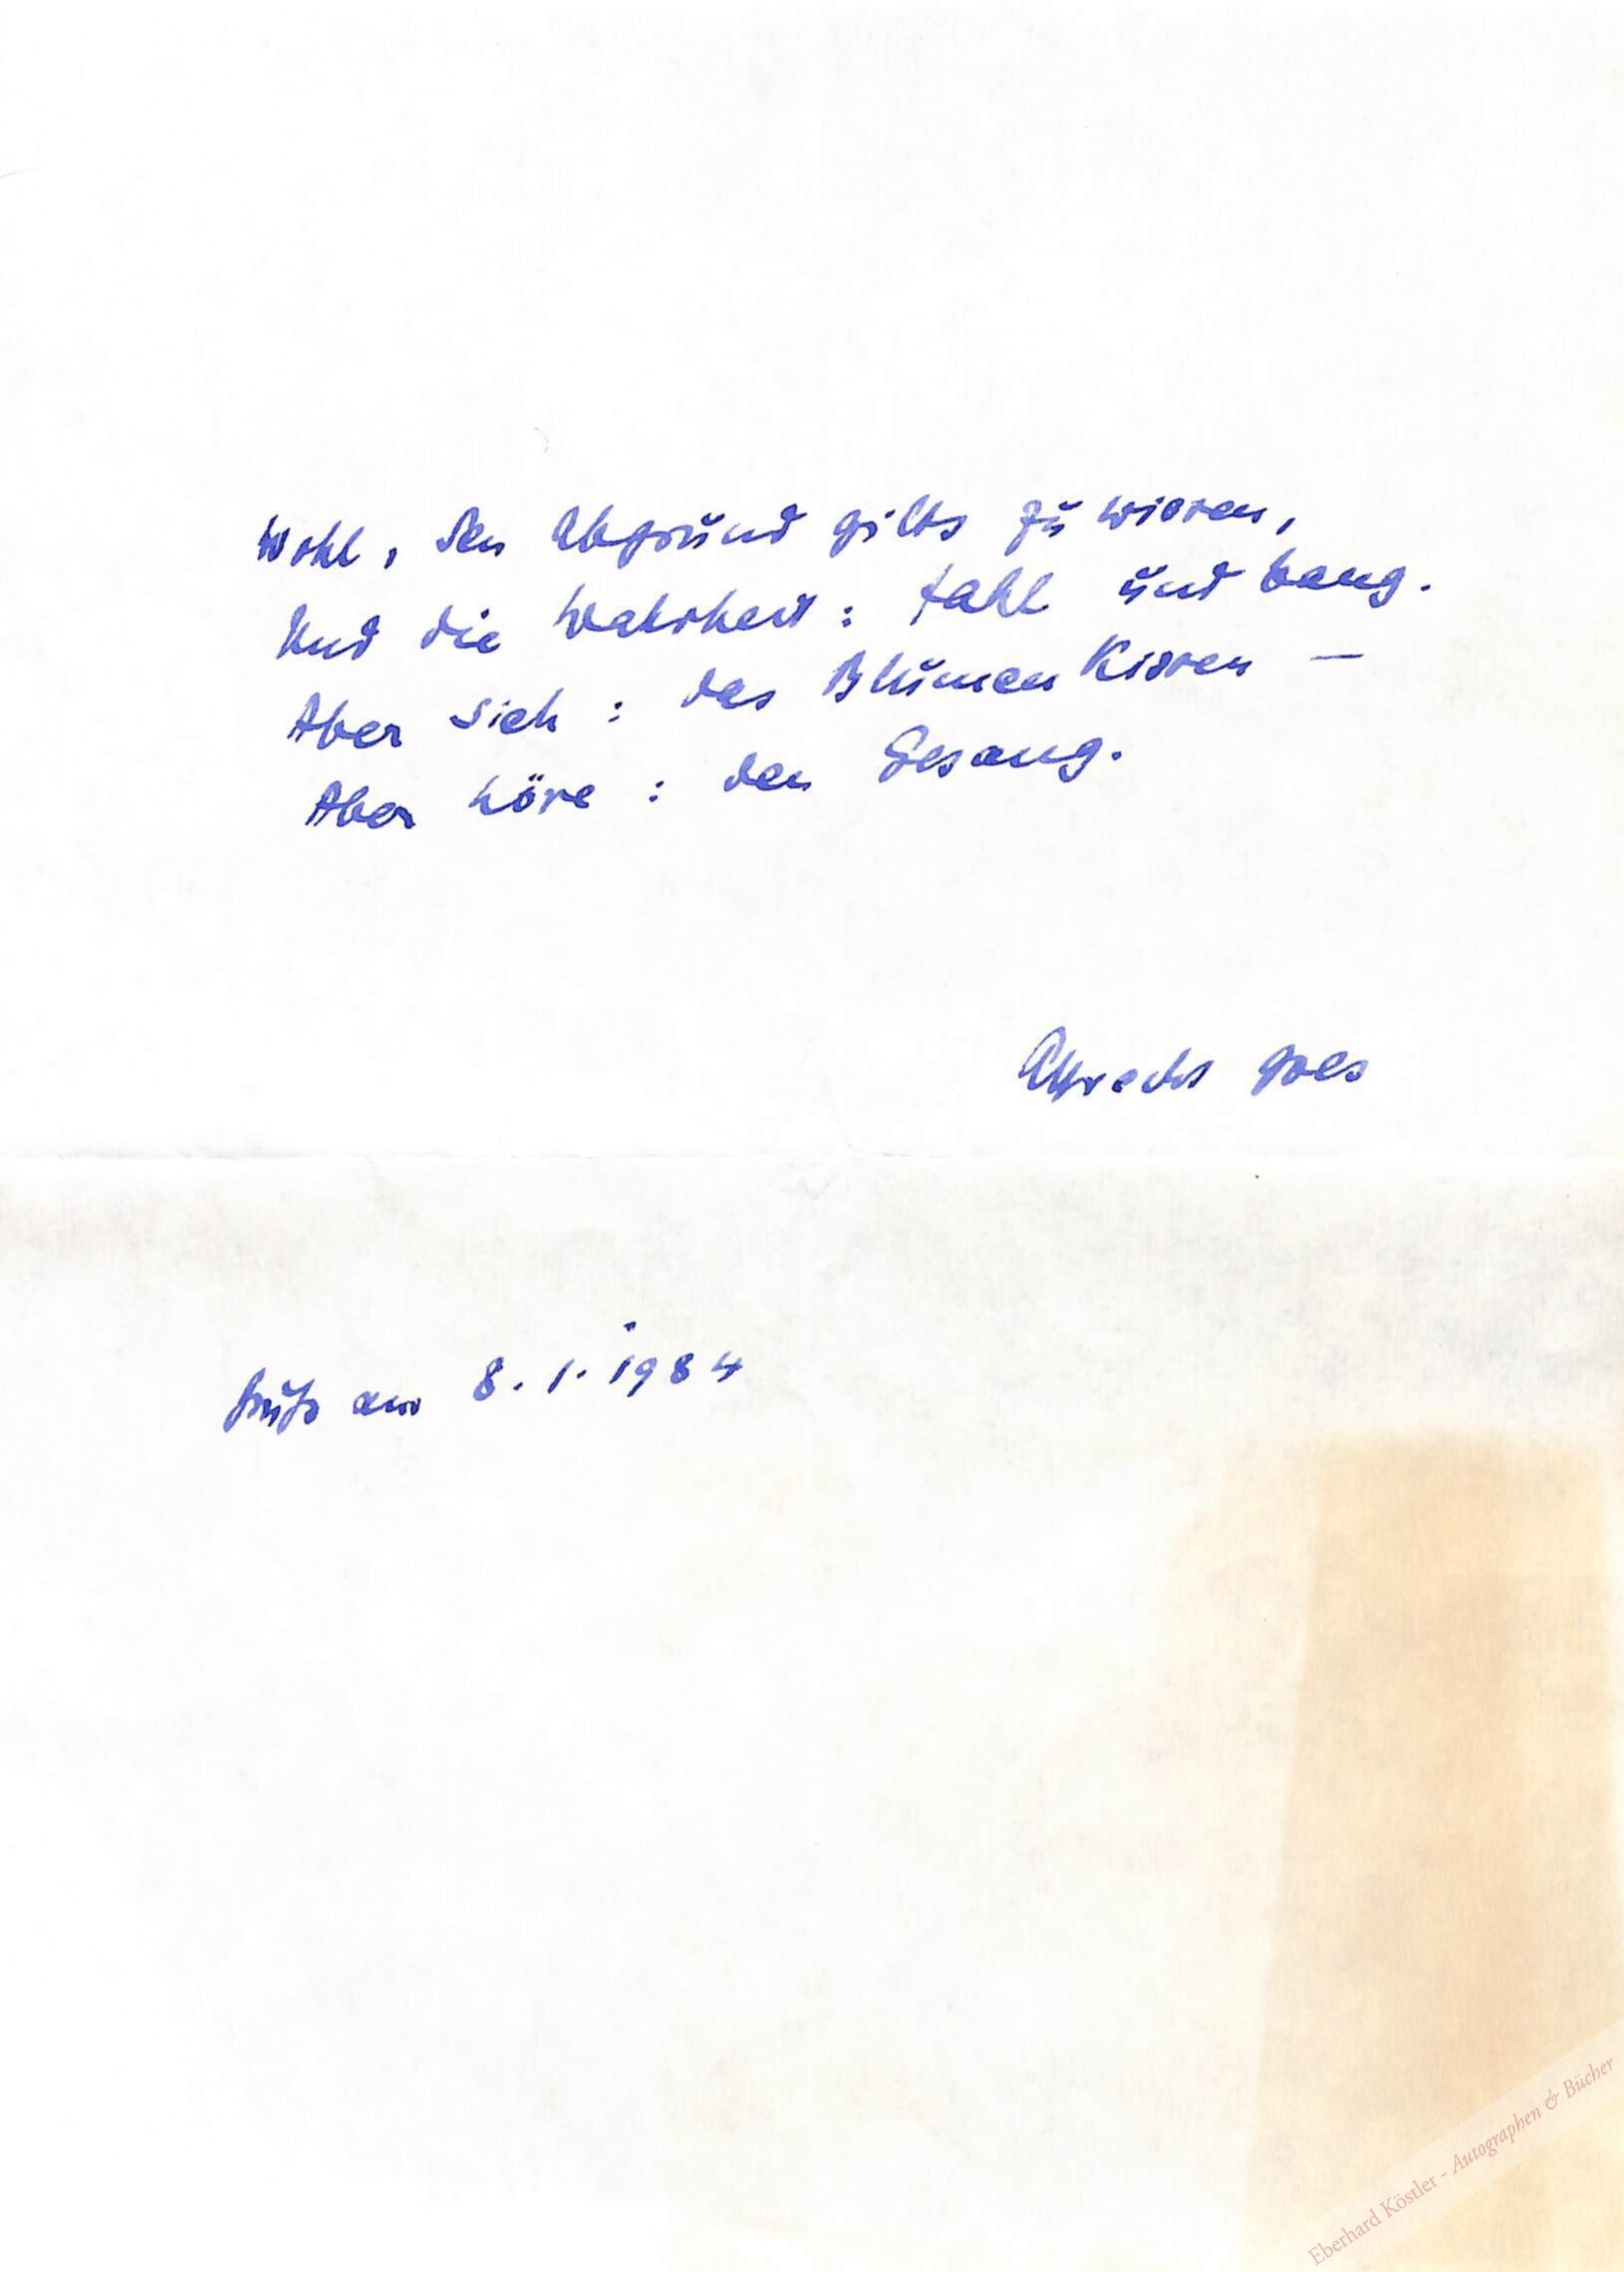 Wohl, den Abgrund gilts zu wissen,
Und die Wahrheit: fahl und bang.
Aber sieh: das Blumenkissen —
Aber höre: den Gesang.
Albrecht Goes
Gruß am 8.1.1984
Eberhard Köstler - Autographen & Bücher